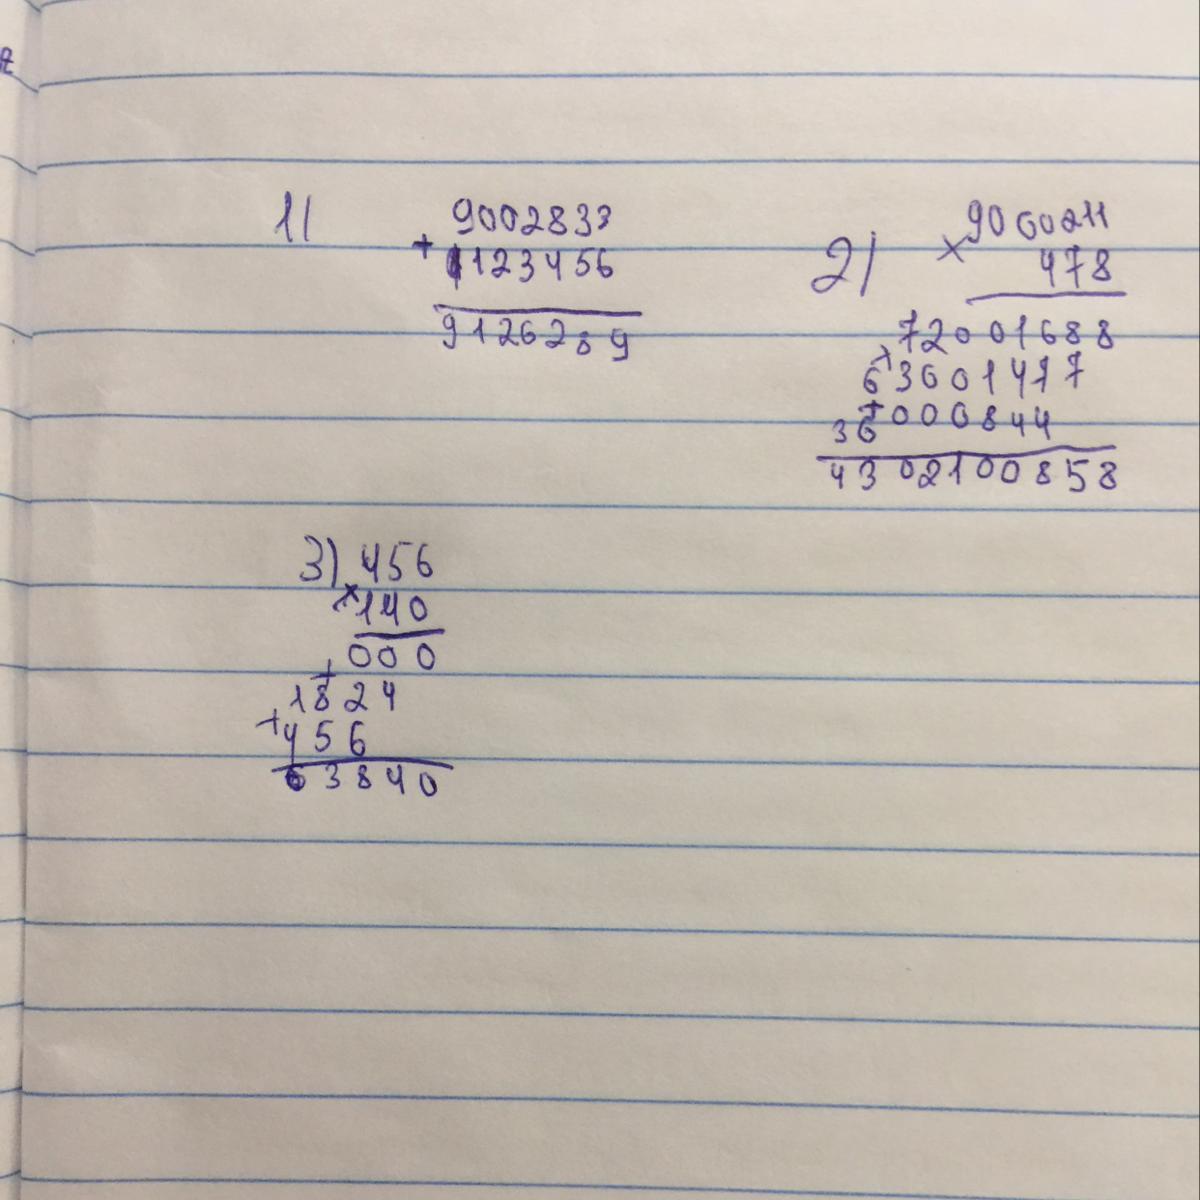 1) 9002833
+ 123456
9126289
2) × 9000211
478
72001688
+ 63001477
+ 36000844
4302100858
3) 456
× 140
000
+ 1824
+ 456
63840